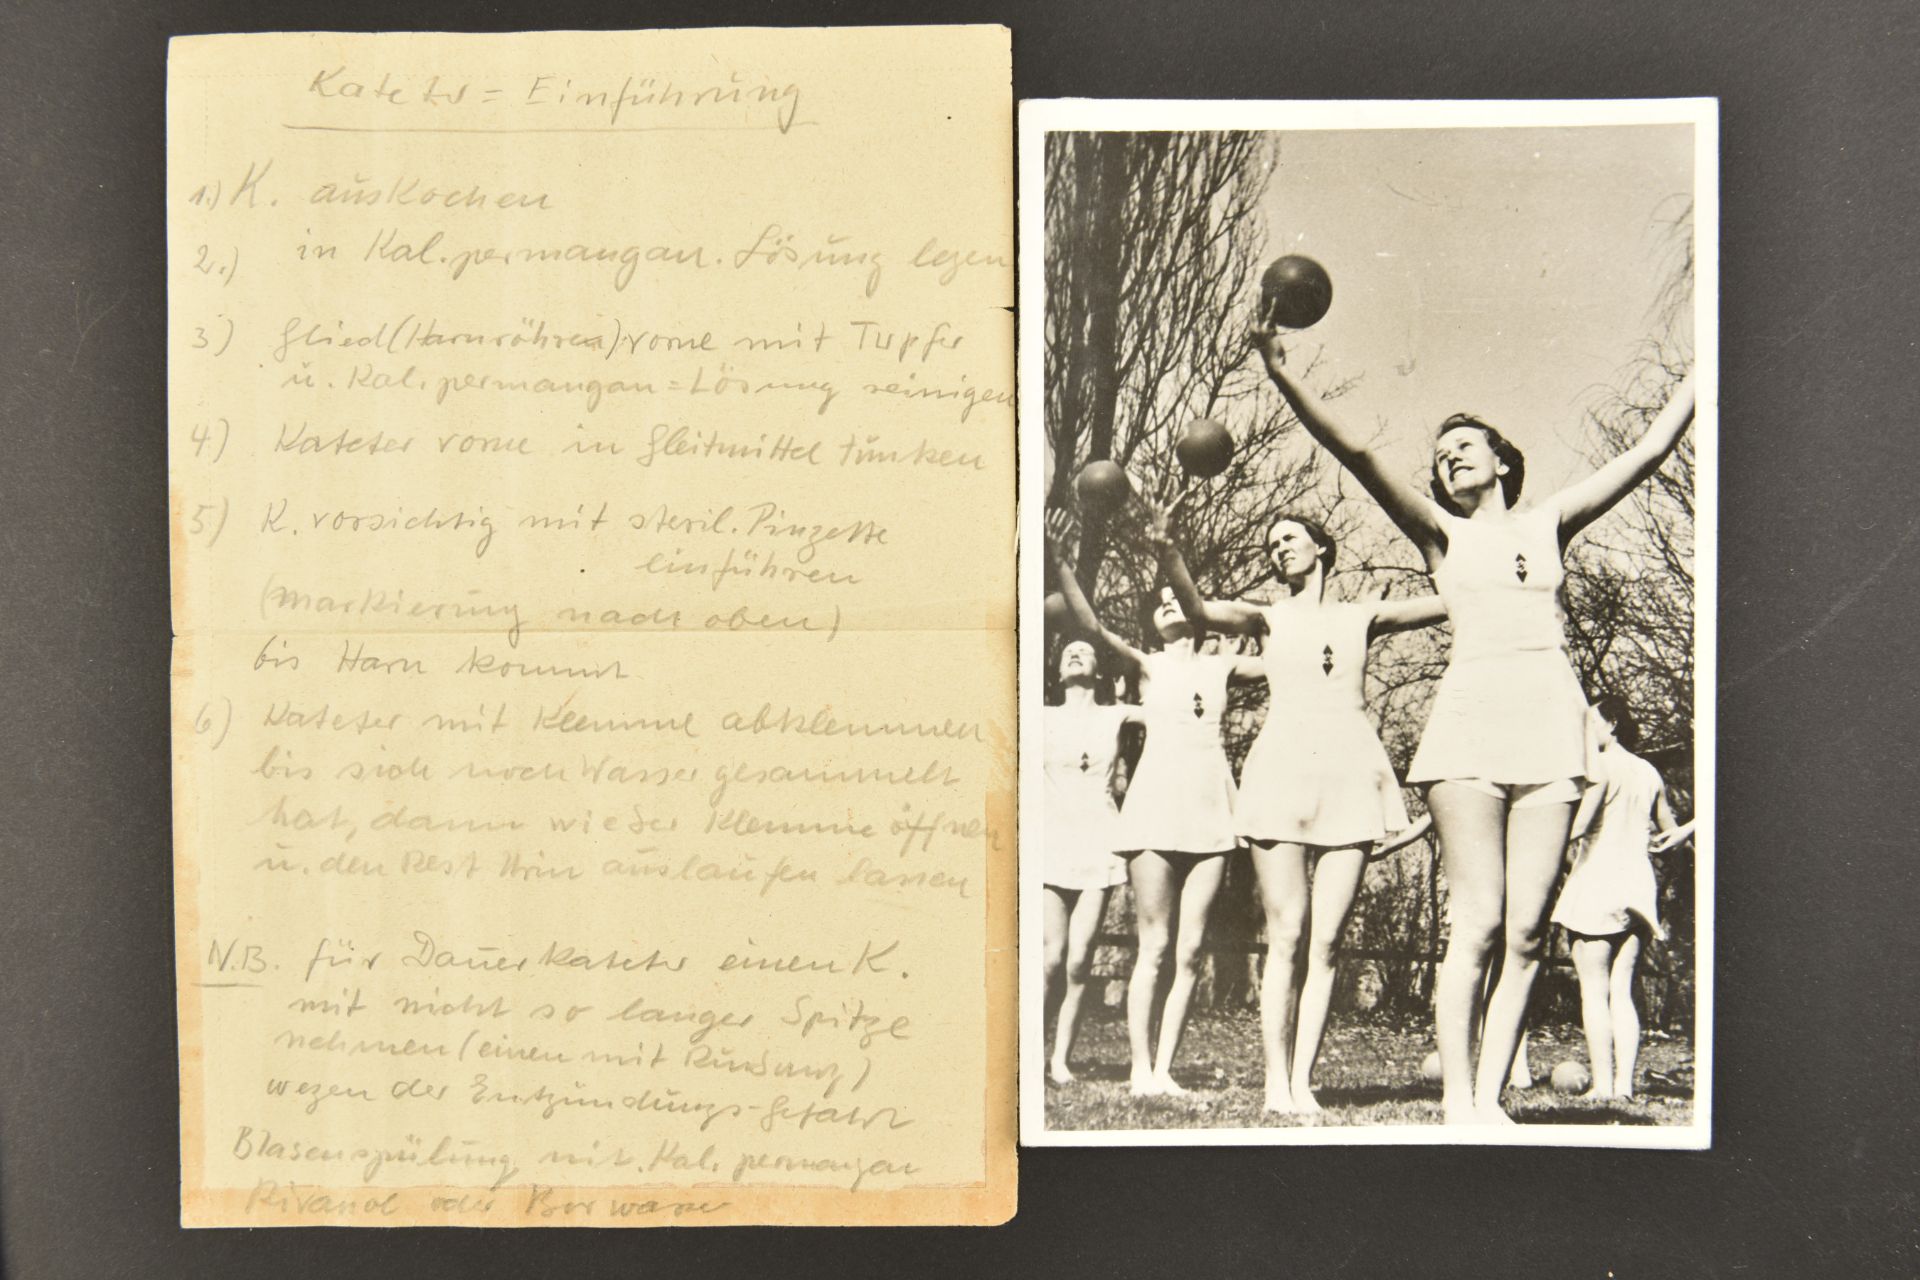 Kateter = Einführung
1.) K. auskochen
2.) in Kal. permangan. Lösung legen
3) Glied (Harnröhre) vorne mit Tupfer
u. Kal. permangan = Lösung reinigen
4) Kateter vorne in Gleitmittel tunken
5) K. vorsichtig mit steril. Pinzette
einführen
(Markierung nach oben)
bis Harn kommt
6) Kateter mit Klemme abklemmen
bis sich noch Wasser gesammelt
hat, dann wieder Klemme öffnen
u. den Rest Urin auslaufen lassen
N.B. für Dauerkateter einen K.
mit nicht so langer Spitze
nehmen (einen mit Rundung)
wegen der Entzündungs-Gefahr
Blasenspülung mit Kal. permangan
Rivanol oder Borwasser